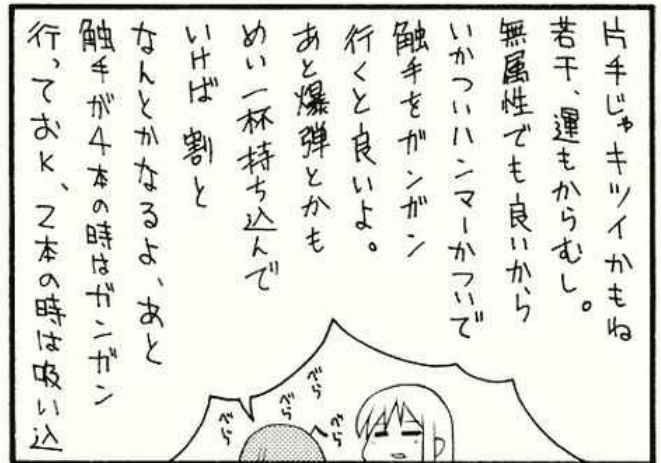 片手じゃキツイかもね
若干、運もからむし。
無属性でも良いから
いかついハンマーかついで
触手をガンガン
行くと良いよ。
あと爆弾とかも
めい一杯持ち込んで
いけば 割と
なんとかなるよ、あと
触手が4本の時はガンガン
行っておK、2本の時は吸い込
べら
べら
べら
べら